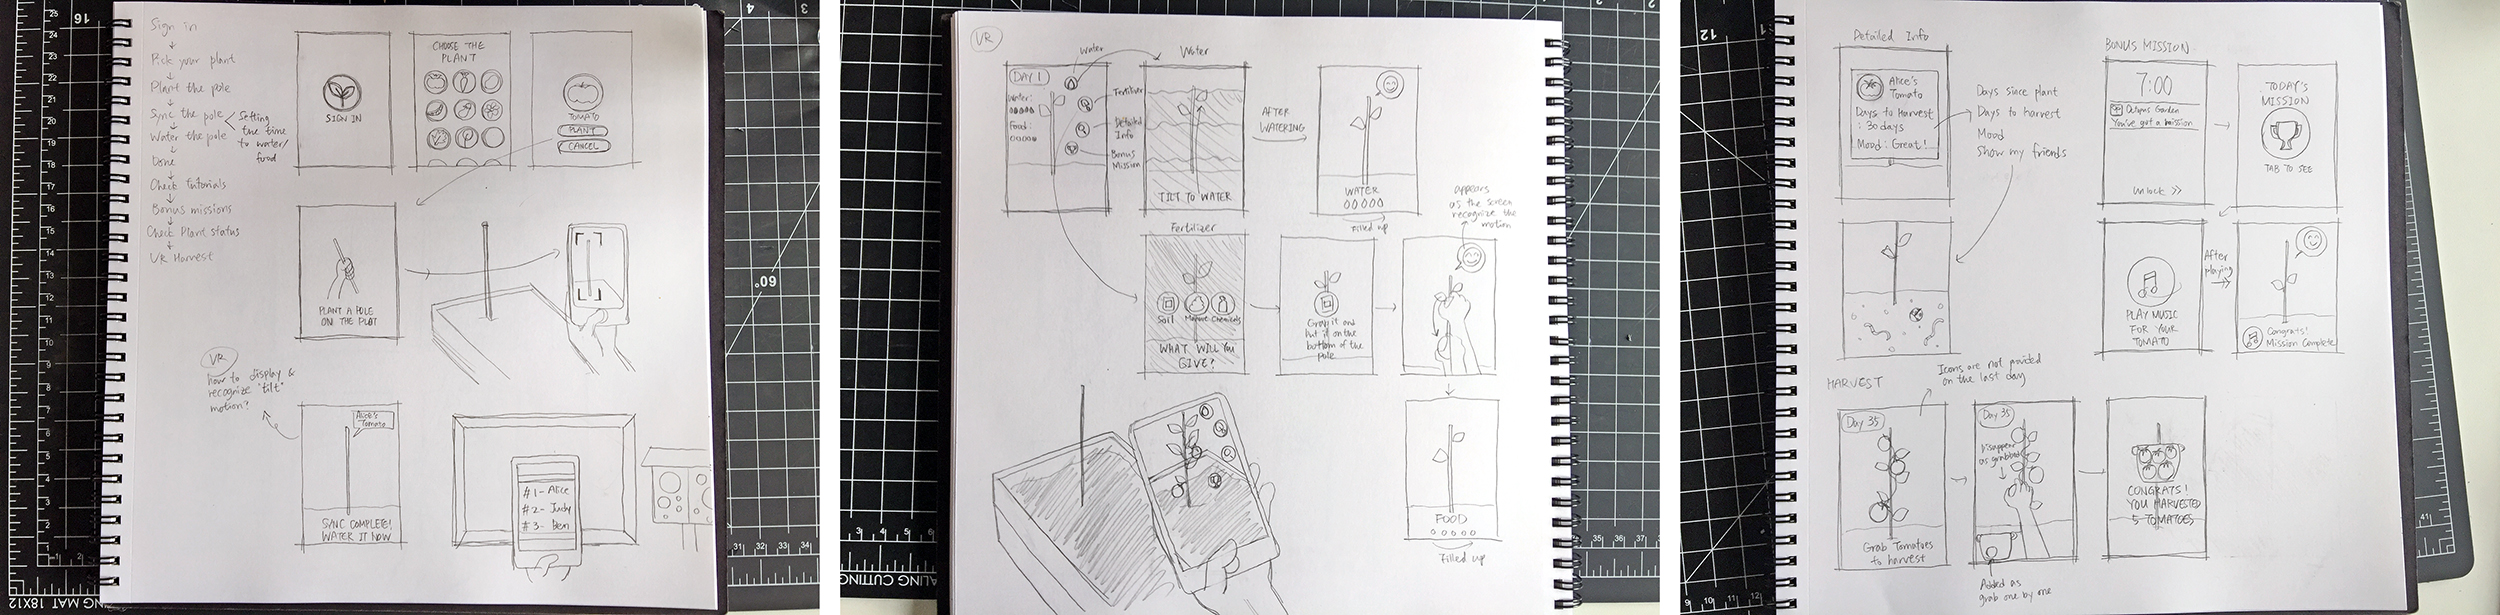 Sign in
Pick your plant
Plant the pole
Sync the pole
Setting
the time
to water/
food
Water the pole
Done
Check tutorials
Bonus missions
Check Plant status
VR Harvest
SIGN IN
CHOOSE THE
PLANT
TOMATO
PLANT
CANCEL
PLANT A POLE
ON THE PLOT
VR
how to display &
recognize "tilt"
motion?
Alice's
Tomato
SYNC COMPLETE!
WATER IT NOW
#1 - Alice
#2 - Judy
#3 - Ben
VR
DAY 1
Water:
Food:
Water
Fertilizer
Detailed
Info
Bonus
Mission
Water
TILT TO WATER
AFTER
WATERING
WATER
Filled up
Fertilizer
Soil
Manure
Chemicals
WHAT WILL YOU
GIVE?
Grab it and
put it on the
bottom of the
pole
appears
as the screen
recognize the
motion
FOOD
Filled up
Detailed Info
Alice's
Tomato
Days to Harvest
: 30 days
Mood: Great!
Days since plant
Days to harvest
Mood
Show my friends
BONUS MISSION
7:00
Octopus Garden
You've got a mission
Unlock >>
TODAY'S
MISSION
TAB TO SEE
PLAY MUSIC
FOR YOUR
TOMATO
After
playing
Congrats!
Mission Complete
HARVEST
Icons are not provided
on the last day
Day 35
Grab Tomatoes
to harvest
Day 35
Disappear
as grabbed
Added as
grab one by one
CONGRATS!
YOU HARVESTED
5 TOMATOES